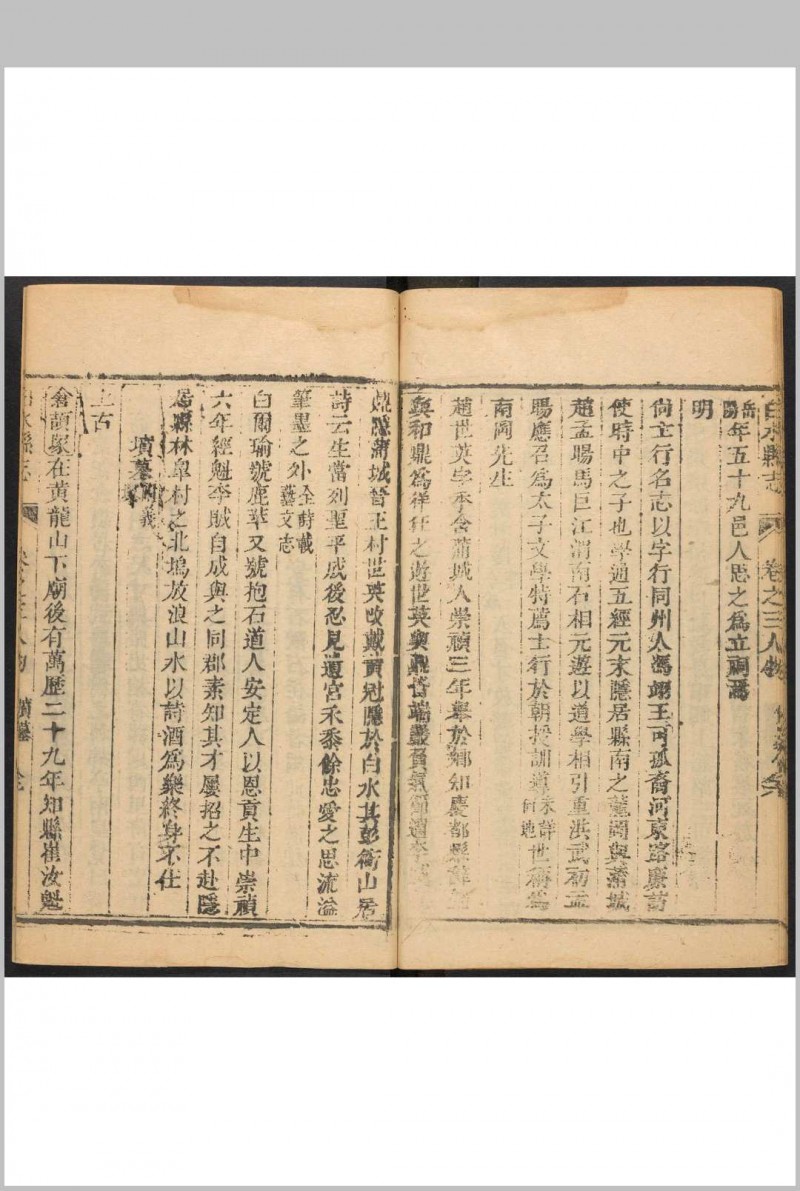 白水縣志 卷之三人物
岳陽年五十九邑人思之爲立祠焉
明
尚士行名志以字行同州人馮翊王可孤裔河東路廉訪
使時中之子也學通五經元末隱居縣南之董岡與蒲城
趙孟暘馬巨江渭南石相元遊以道學相引重洪武初孟
暘應召爲太子文學特薦士行於朝授訓導未詳何地世稱爲
南岡先生
趙世英字季含蒲城人崇禎三年舉於鄉知慶都縣
與和鼎爲祥狂之遊世英與鼎皆端嚴負氣節遭李
鼎隱蒲城晉王村世英改戴黃冠隱於白水其彭衙山居
詩云生當列聖平成後忍見遺宮禾黍餘忠愛之思流溢
筆墨之外全詩載藝文志
白爾瑜號鹿苹又號抱石道人安定人以恩貢生中崇禎
六年經魁李賊自成與之同郡素知其才屢招之不赴隱
居縣林皐村之北塢放浪山水以詩酒爲樂終身不仕
墳墓附義塚
上古
倉頡冢在黃龍山下廟後有萬歷二十九年知縣崔汝魁
白水縣志 卷之三人物 墳墓